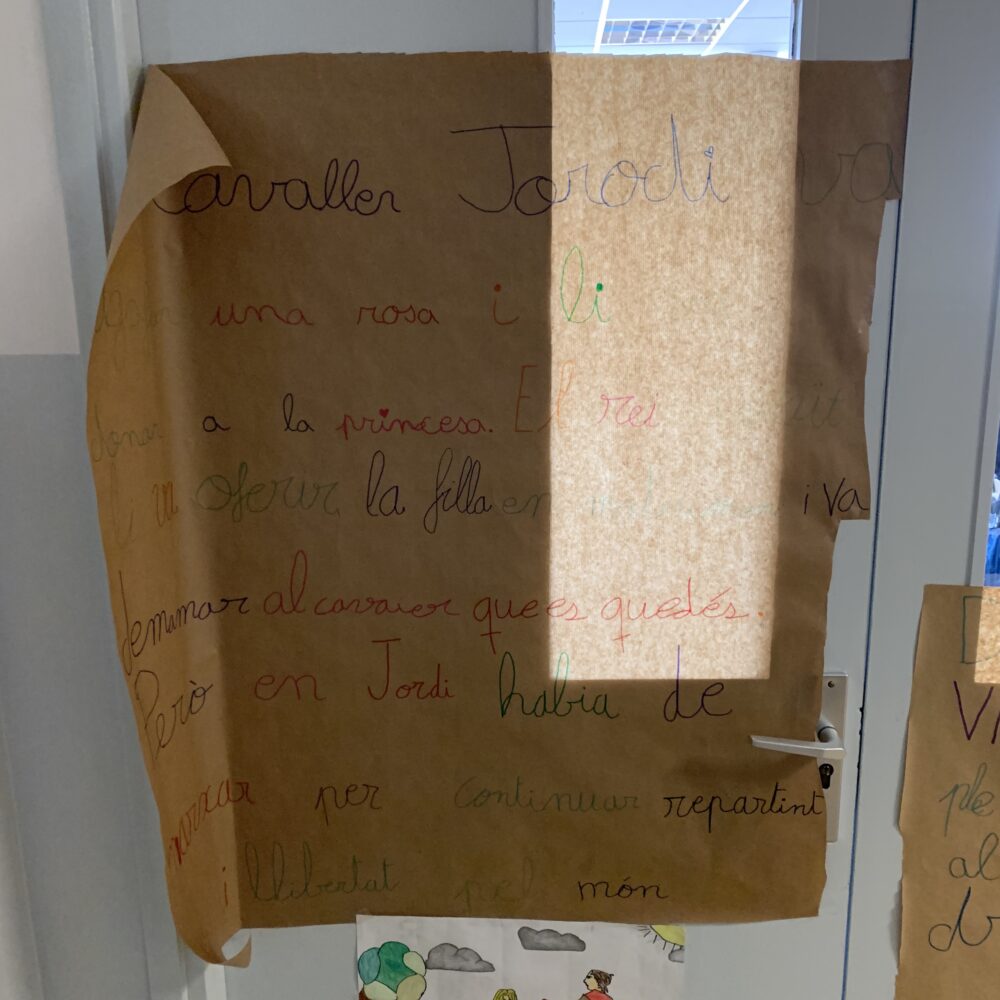 cavaller Jorodi va
agafar una rosa i li
donar a la princesa. El rei
li va oferir la filla en matrimoni i va
demamar al cavaier que es quedés.
Però en Jordi habia de
marxar per continuar repartint
i llibertat pel món
Vi
ple
al